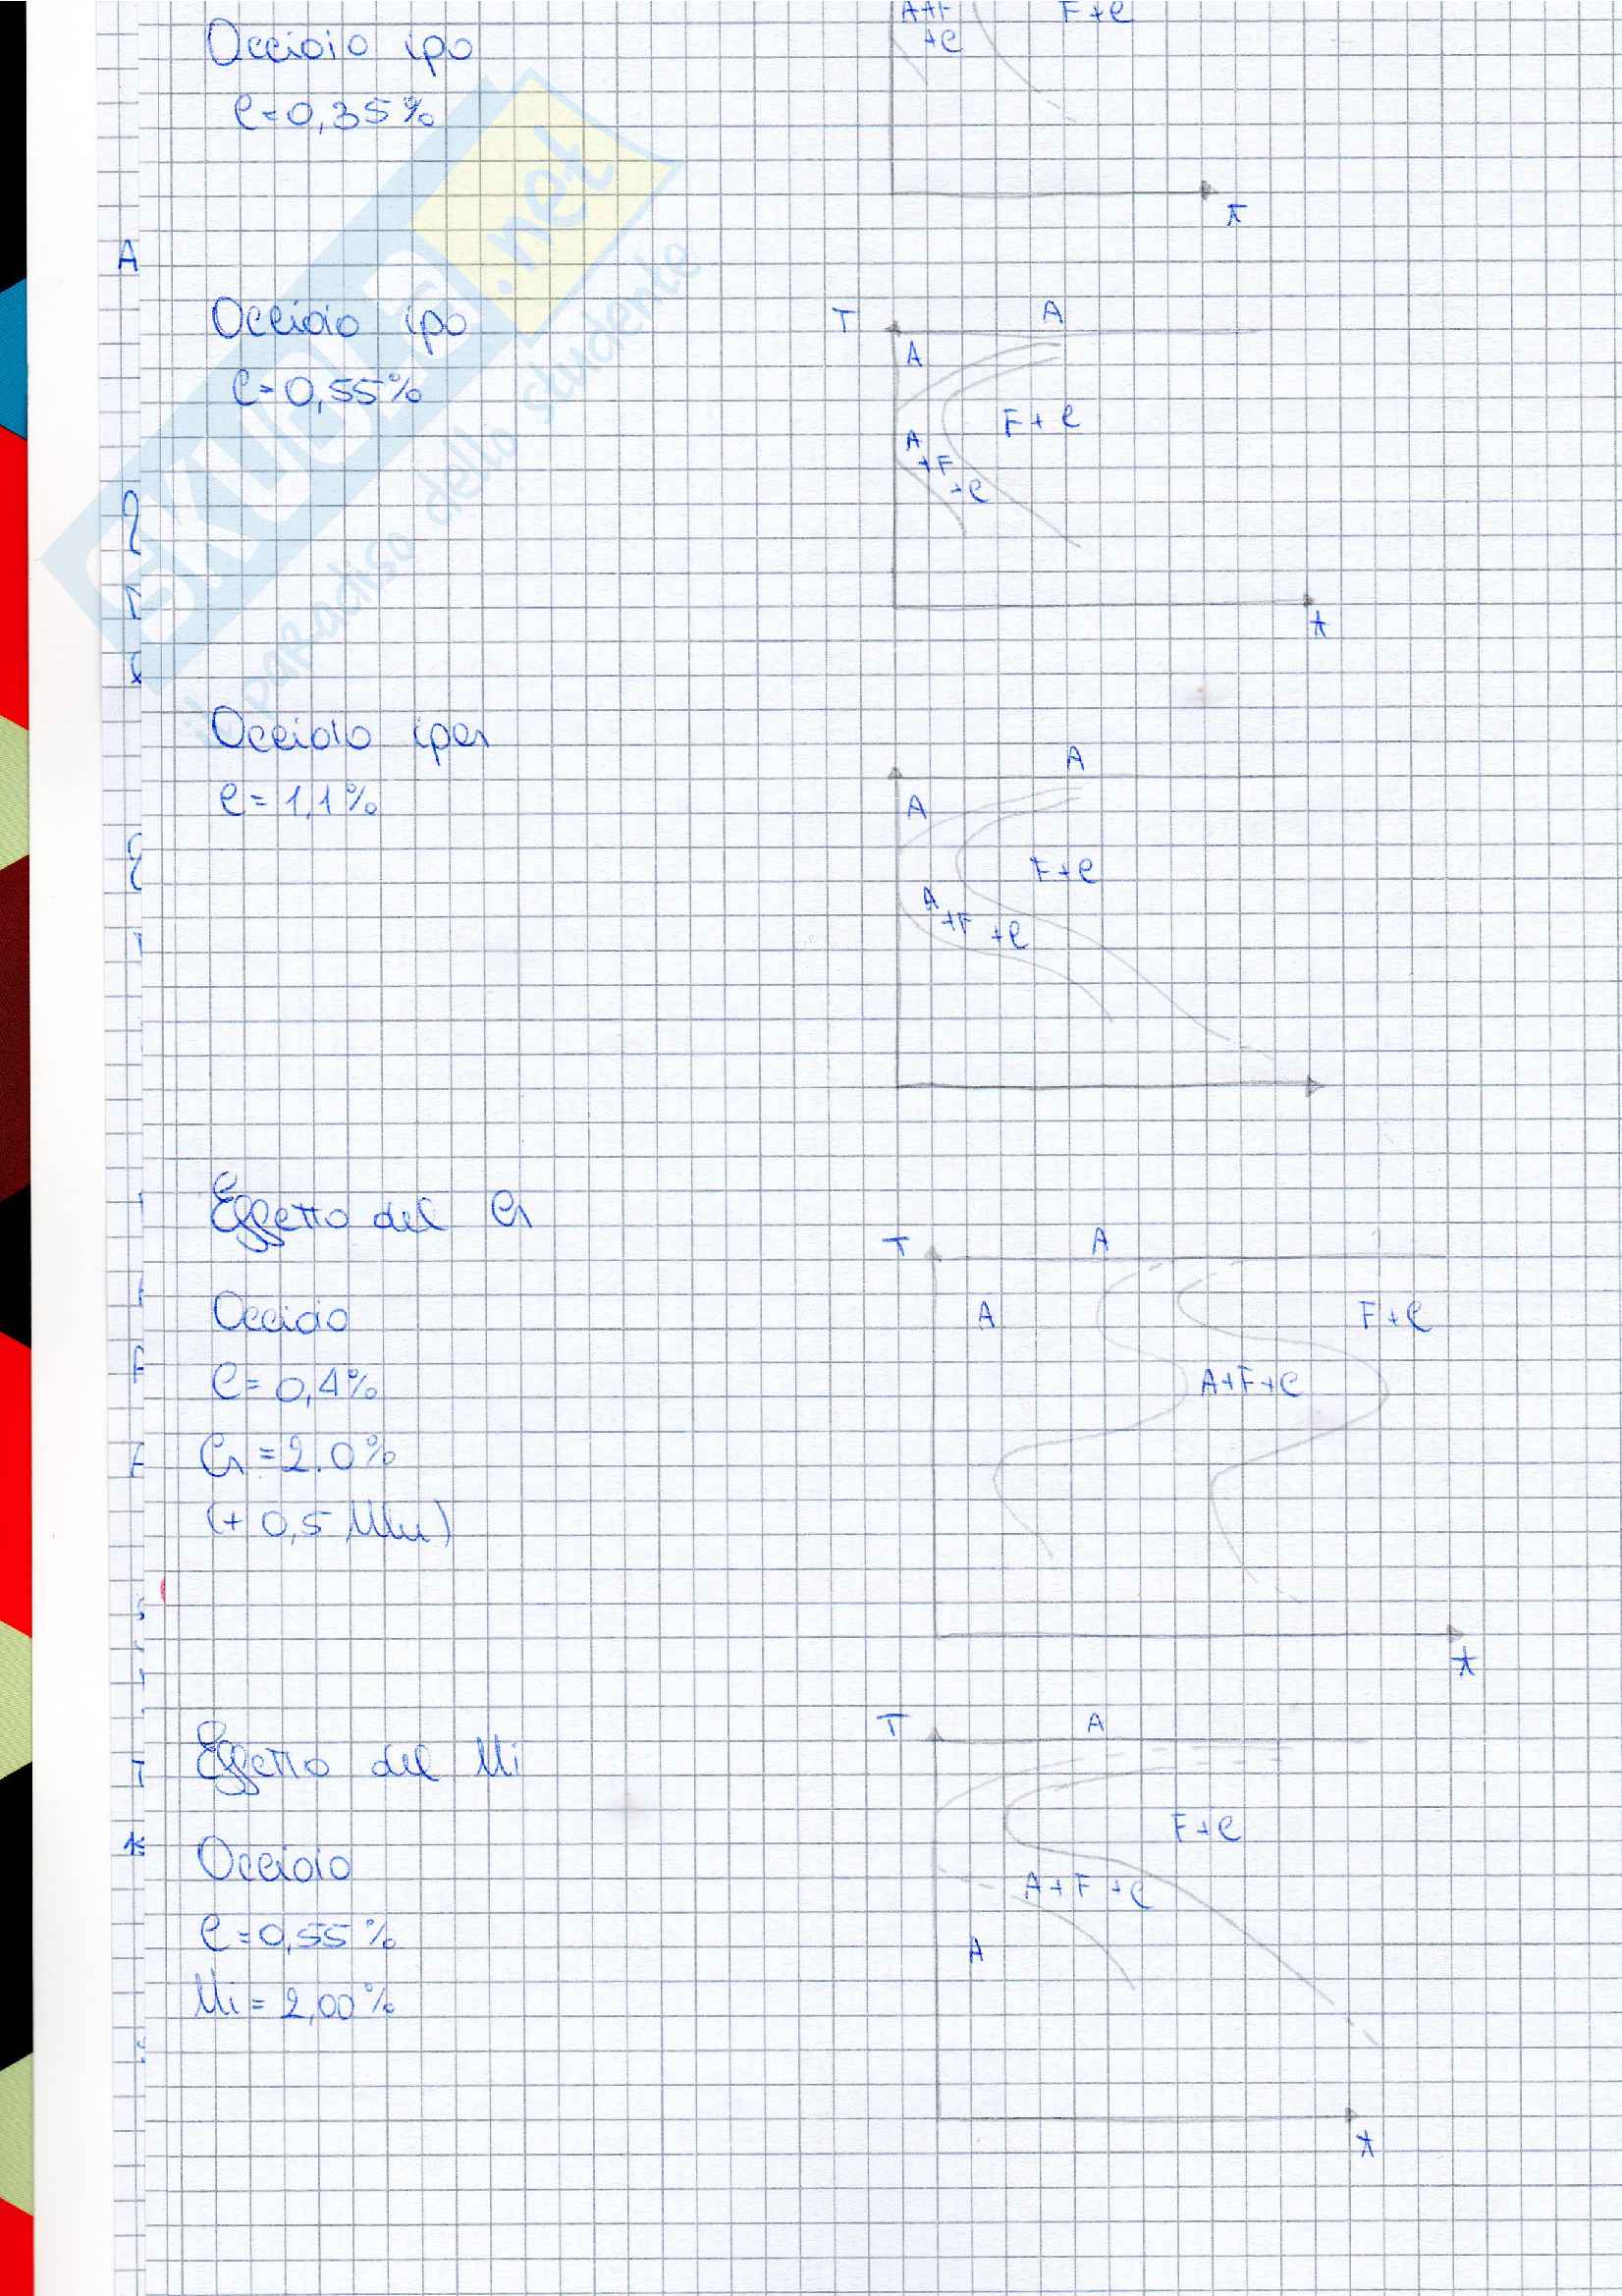 A+F
+C
F+C
Acciaio ipo
C=0,35%
t
A
Acciaio ipo
C=0,55%
T
A
A
F+C
A
+F
+C
t
SKUOLA.net
il paradiso dello studente
Acciaio iper
C=1,1%
A
A
F+C
A
+F +C
Effetto del Cr
T
A
Acciaio
C=0,4%
Cr=2.0%
(+0,5 Mn)
A
F+C
A+F+C
t
Effetto del Ni
T
A
Acciaio
C=0,55%
Ni=2,00%
F+C
A+F+C
A
t